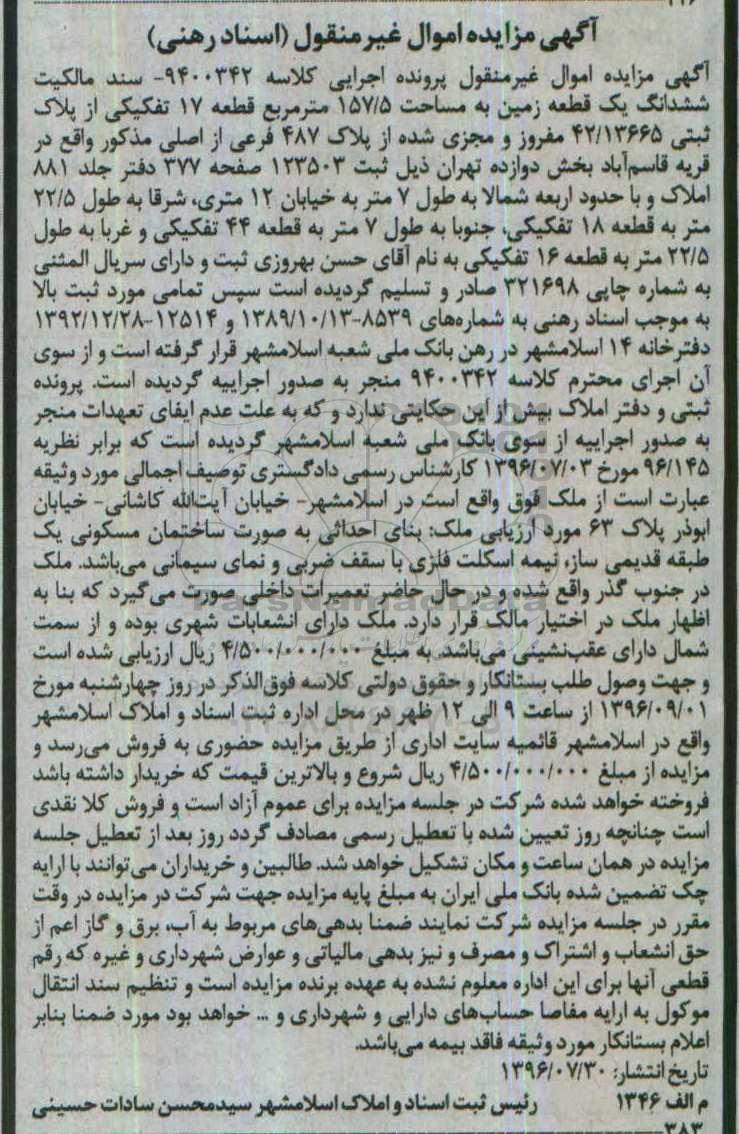 آگهی مزایده اموال غیرمنقول (اسناد رهنی)
آگهی مزایده اموال غیرمنقول پرونده اجرایی کلاسه ۹۴۰۰۳۴۲- سند مالکیت
ششدانگ یک قطعه زمین به مساحت ۱۵۷/۵ مترمربع قطعه ۱۷ تفکیکی از پلاک
ثبتی ۴۲/۱۳۶۶۵ مفروز و مجزی شده از پلاک ۴۸۷ فرعی از اصلی مذکور واقع در
قریه قاسم‌آباد بخش دوازده تهران ذیل ثبت ۱۲۳۵۰۳ صفحه ۳۷۷ دفتر جلد ۸۸۱
املاک و با حدود اربعه شمالا به طول ۷ متر به خیابان ۱۲ متری، شرقا به طول ۲۲/۵
متر به قطعه ۱۸ تفکیکی، جنوبا به طول ۷ متر به قطعه ۴۴ تفکیکی و غربا به طول
۲۲/۵ متر به قطعه ۱۶ تفکیکی به نام آقای حسن بهروزی ثبت و دارای سریال المثنی
به شماره چاپی ۳۲۱۶۹۸ صادر و تسلیم گردیده است سپس تمامی مورد ثبت بالا
به موجب اسناد رهنی به شماره‌های ۸۵۳۹-۱۳۸۹/۱۰/۱۳ و ۱۲۵۱۴-۱۳۹۲/۱۲/۲۸
دفترخانه ۱۴ اسلامشهر در رهن بانک ملی شعبه اسلامشهر قرار گرفته است و از سوی
آن اجرای محترم کلاسه ۹۴۰۰۳۴۲ منجر به صدور اجراییه گردیده است. پرونده
ثبتی و دفتر املاک بیش از این حکایتی ندارد و که به علت عدم ایفای تعهدات منجر
به صدور اجراییه از سوی بانک ملی شعبه اسلامشهر گردیده است که برابر نظریه
۹۶/۱۴۵ مورخ ۱۳۹۶/۰۷/۰۳ کارشناس رسمی دادگستری توصیف اجمالی مورد وثیقه
عبارت است از ملک فوق واقع است در اسلامشهر- خیابان آیت‌الله کاشانی- خیابان
ابوذر پلاک ۶۳ مورد ارزیابی ملک: بنای احداثی به صورت ساختمان مسکونی یک
طبقه قدیمی ساز، نیمه اسکلت فلزی با سقف ضربی و نمای سیمانی می‌باشد. ملک
در جنوب گذر واقع شده و در حال حاضر تعمیرات داخلی صورت می‌گیرد که بنا به
اظهار ملک در اختیار مالک قرار دارد. ملک دارای انشعابات شهری بوده و از سمت
شمال دارای عقب‌نشینی می‌باشد. به مبلغ ۴/۵۰۰/۰۰۰/۰۰۰ ریال ارزیابی شده است
و جهت وصول طلب بستانکار و حقوق دولتی کلاسه فوق‌الذکر در روز چهارشنبه مورخ
۱۳۹۶/۰۹/۰۱ از ساعت ۹ الی ۱۲ ظهر در محل اداره ثبت اسناد و املاک اسلامشهر
واقع در اسلامشهر قائمیه سایت اداری از طریق مزایده حضوری به فروش می‌رسد و
مزایده از مبلغ ۴/۵۰۰/۰۰۰/۰۰۰ ریال شروع و بالاترین قیمت که خریدار داشته باشد
فروخته خواهد شده شرکت در جلسه مزایده برای عموم آزاد است و فروش کلا نقدی
است چنانچه روز تعیین شده با تعطیل رسمی مصادف گردد روز بعد از تعطیل جلسه
مزایده در همان ساعت و مکان تشکیل خواهد شد. طالبین و خریداران می‌توانند با ارایه
چک تضمین شده بانک ملی ایران به مبلغ پایه مزایده جهت شرکت در مزایده در وقت
مقرر در جلسه مزایده شرکت نمایند ضمنا بدهی‌های مربوط به آب، برق و گاز اعم از
حق انشعاب و اشتراک و مصرف و نیز بدهی مالیاتی و عوارض شهرداری و غیره که رقم
قطعی آنها برای این اداره معلوم نشده به عهده برنده مزایده است و تنظیم سند انتقال
موکول به ارایه مفاصا حساب‌های دارایی و شهرداری و ... خواهد بود مورد ضمنا بنابر
اعلام بستانکار مورد وثیقه فاقد بیمه می‌باشد.
تاریخ انتشار: ۱۳۹۶/۰۷/۳۰
م الف ۱۳۴۶ رئیس ثبت اسناد و املاک اسلامشهر سیدمحسن سادات حسینی
ParsNamadData